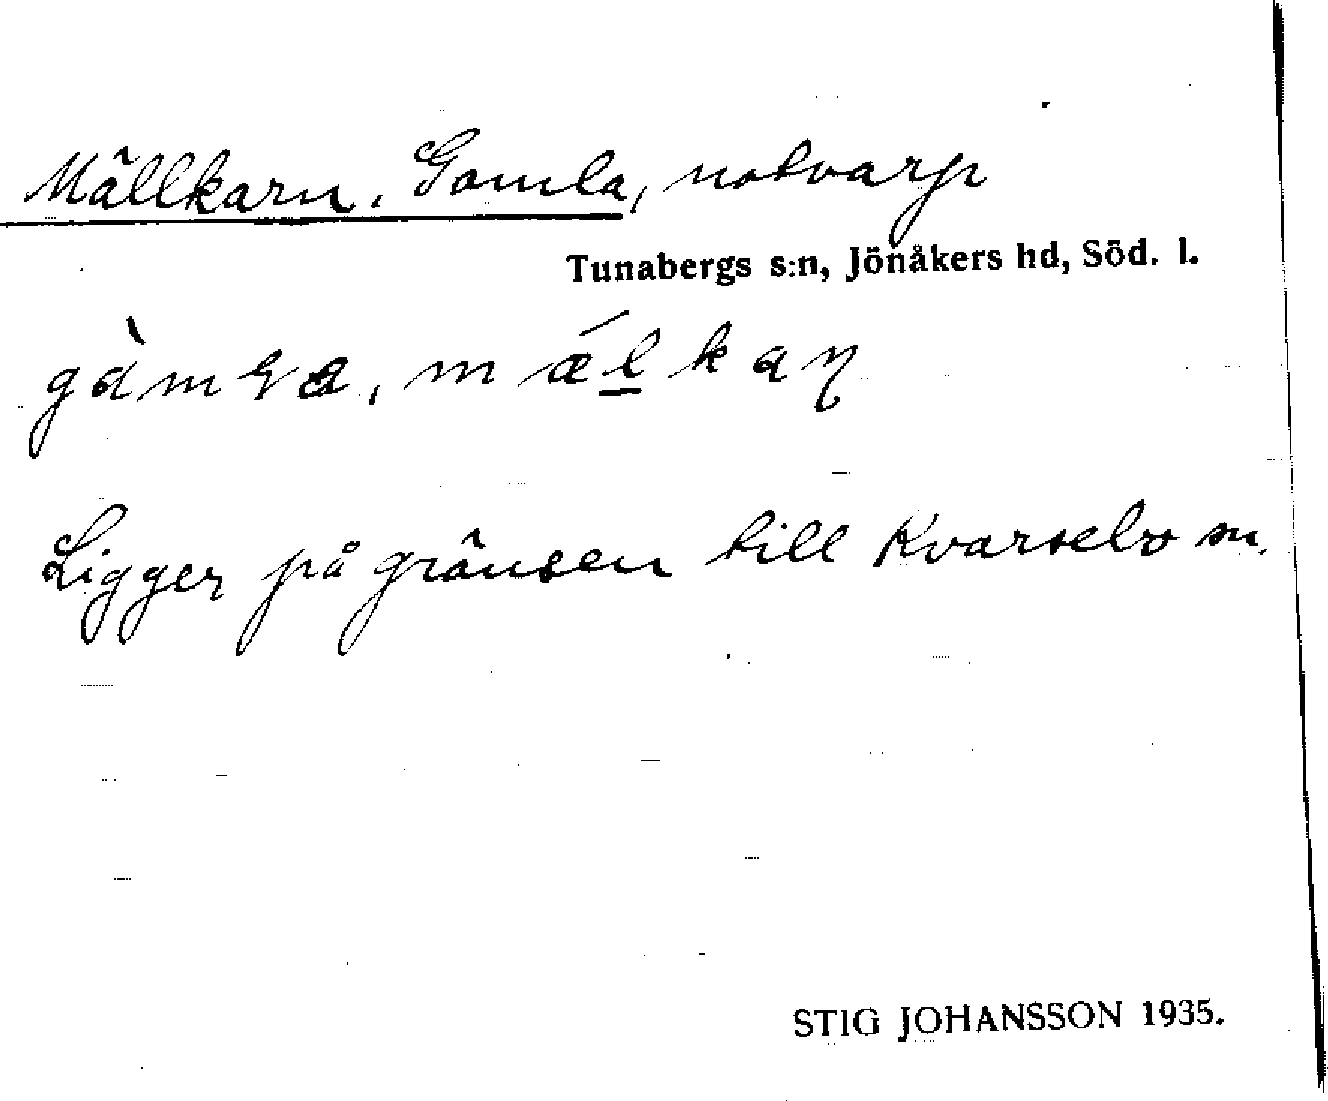 Mällkarn, Gamla, notvarp
Tunabergs s:n, Jönåkers hd, Söd. l.
Ligger på gränsen till Kvarsebo sn.
STIG JOHANSSON 1935.